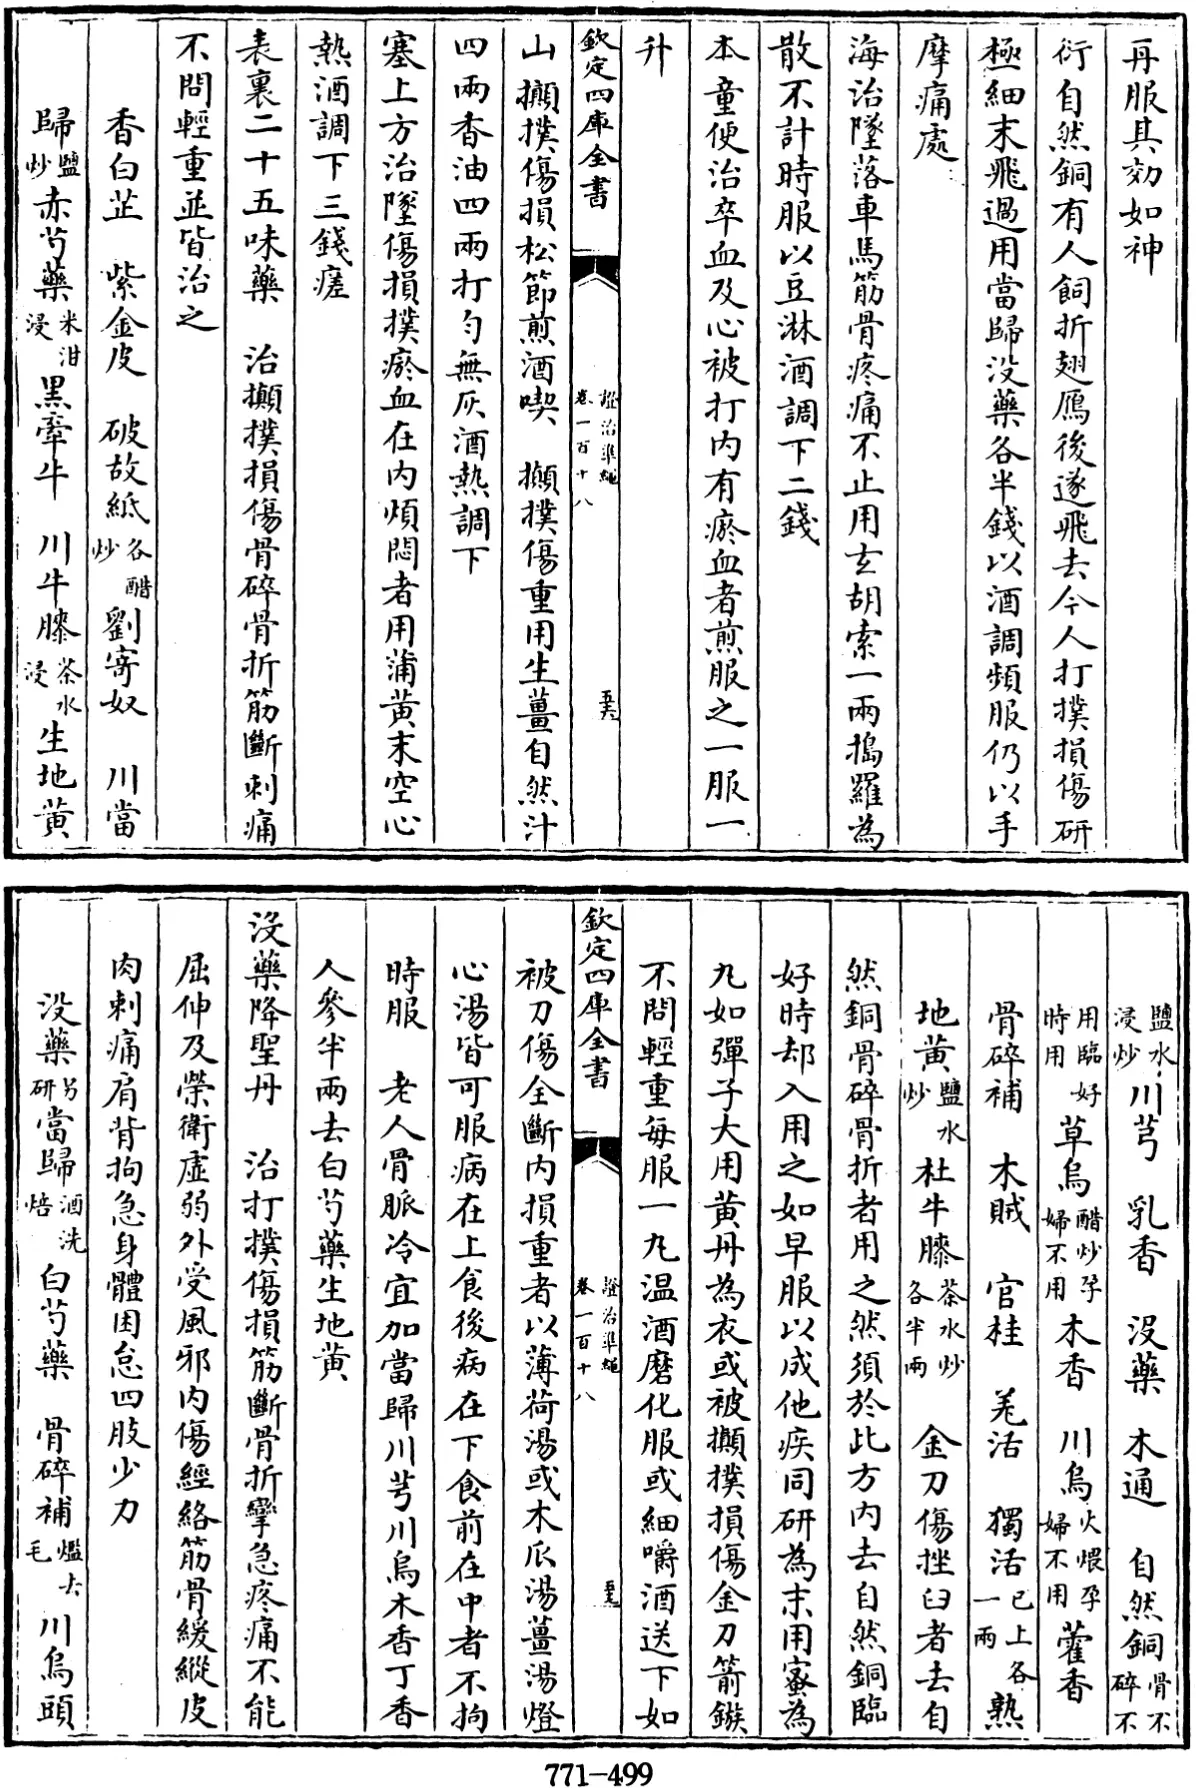 再服其効如神
衍自然銅有人飼折翅鴈後遂飛去今人打撲損傷研
極細末飛過用當歸没藥各半錢以酒調頻服仍以手
摩痛處
海治墜落車馬筋骨疼痛不止用玄胡索一兩搗羅為
散不計時服以豆淋酒調下二錢
本童便治卒血及心被打内有瘀血者煎服之一服一
升
欽定四庫全書 證治準繩 卷一百十八 五六
山攧撲傷損松節煎酒喫 攧撲傷重用生薑自然汁
四兩香油四兩打勻無灰酒熱調下
塞上方治墜傷損撲瘀血在内煩悶者用蒲黄末空心
熱酒調下三錢瘥
表裏二十五味藥 治攧撲損傷骨碎骨折筋斷刺痛
不問輕重並皆治之
香白芷 紫金皮 破故紙各醋炒劉寄奴 川當
歸鹽炒赤芍藥米泔浸黑牽牛 川牛膝茶水浸生地黄
鹽水浸炒川芎 乳香 没藥 木通 自然銅骨不碎不
用臨好時用草烏醋炒孕婦不用木香 川烏火煨孕婦不用藿香
骨碎補 木賊 官桂 羌活 獨活已上各一兩熟
地黄鹽水炒杜牛膝茶水炒各半兩 金刀傷挫臼者去自
然銅骨碎骨折者用之然須於此方内去自然銅臨
好時却入用之如早服以成他疾同研為末用蜜為
丸如彈子大用黄丹為衣或被攧撲損傷金刀箭鏃
不問輕重每服一丸温酒磨化服或細嚼酒送下如
欽定四庫全書 證治準繩 卷一百十八
被刀傷全斷内損重者以薄荷湯或木瓜湯薑湯燈
心湯皆可服病在上食後病在下食前在中者不拘
時服 老人骨脈冷宜加當歸川芎川烏木香丁香
人參半兩去白芍藥生地黄
没藥降聖丹 治打撲傷損筋斷骨折攣急疼痛不能
屈伸及榮衛虚弱外受風邪内傷經絡筋骨緩縱皮
肉刺痛肩背拘急身體困怠四肢少力
没藥另研當歸酒洗焙 白芍藥 骨碎補爁去毛 川烏頭
771-499